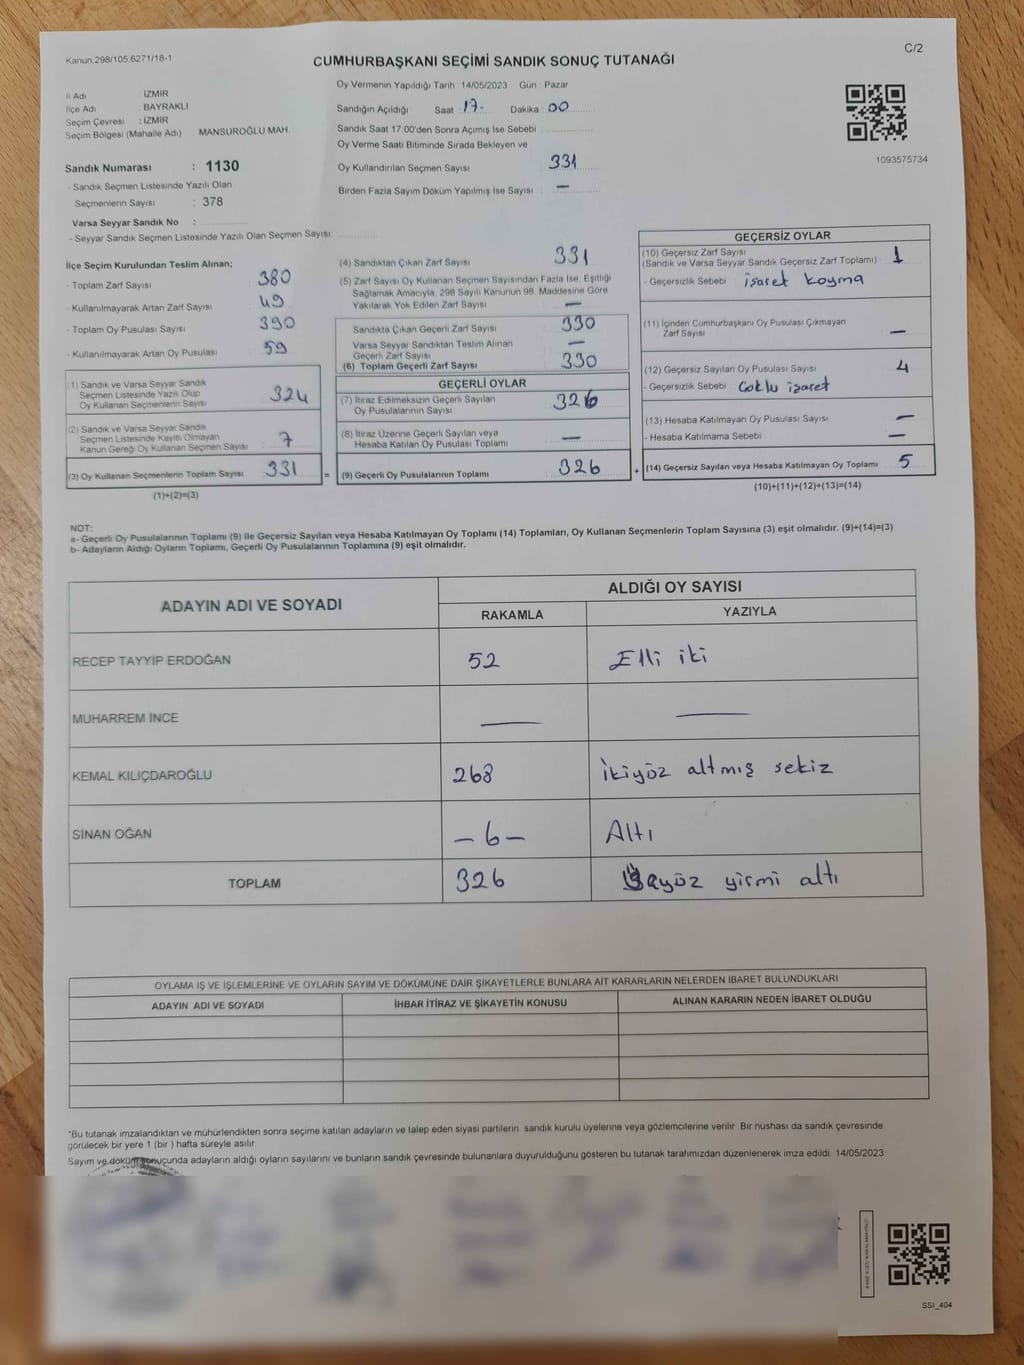 Kanun:298/105.6271/18-1
C/2
CUMHURBAŞKANI SEÇİMİ SANDIK SONUÇ TUTANAĞI
İl Adı İZMİR
İlçe Adı BAYRAKLI
Seçim Çevresi : İZMİR
Seçim Bölgesi (Mahalle Adı) : MANSUROĞLU MAH.
Sandık Numarası : 1130
- Sandık Seçmen Listesinde Yazılı Olan
Seçmenlerin Sayısı : 378
Varsa Seyyar Sandık No :
- Seyyar Sandık Seçmen Listesinde Yazılı Olan Seçmen Sayısı:
Oy Vermenin Yapıldığı Tarih :14/05/2023 Gün : Pazar
Sandığın Açıldığı Saat 17- Dakika : 00
Sandık Saat 17:00'den Sonra Açımış İse Sebebi
Oy Verme Saati Bitiminde Sırada Bekleyen ve
Oy Kullandırılan Seçmen Sayısı 331
Birden Fazla Sayım Döküm Yapılmış İse Sayısı : —
1093575734
İlçe Seçim Kurulundan Teslim Alınan;
- Toplam Zarf Sayısı 380
- Kullanılmayarak Artan Zarf Sayısı 49
- Toplam Oy Pusulası Sayısı 390
- Kullanılmayarak Artan Oy Pusulası 59
(1) Sandık ve Varsa Seyyar Sandık
Seçmen Listesinde Yazılı Olup
Oy Kullanan Seçmenlerin Sayısı 324
(2) Sandık ve Varsa Seyyar Sandık
Seçmen Listesinde Kayıtlı Olmayan
Kanun Gereği Oy Kullanan Seçmen Sayısı 7
(3) Oy Kullanan Seçmenlerin Toplam Sayısı 331 =
(1)+(2)=(3)
(4) Sandıktan Çıkan Zarf Sayısı 331
(5) Zarf Sayısı Oy Kullanan Seçmen Sayısından Fazla İse, Eşitliği
Sağlamak Amacıyla, 298 Sayılı Kanunun 98. Maddesine Göre
Yakılarak Yok Edilen Zarf Sayısı —
Sandıkta Çıkan Geçerli Zarf Sayısı 330
Varsa Seyyar Sandıktan Teslim Alınan
Geçerli Zarf Sayısı —
(6) Toplam Geçerli Zarf Sayısı 330
GEÇERLİ OYLAR
(7) İtiraz Edilmeksizin Geçerli Sayılan
Oy Pusulalarının Sayısı 326
(8) İtiraz Üzerine Geçerli Sayılan veya
Hesaba Katılan Oy Pusulası Toplamı —
(9) Geçerli Oy Pusulalarının Toplamı 326 +
GEÇERSİZ OYLAR
(10) Geçersiz Zarf Sayısı
(Sandık ve Varsa Seyyar Sandık Geçersiz Zarf Toplamı) 1
- Geçersizlik Sebebi işaret koyma
(11) İçinden Cumhurbaşkanı Oy Pusulası Çıkmayan
Zarf Sayısı —
(12) Geçersiz Sayılan Oy Pusulası Sayısı 4
- Geçersizlik Sebebi Çoklu işaret
(13) Hesaba Katılmayan Oy Pusulası Sayısı —
- Hesaba Katılmama Sebebi —
(14) Geçersiz Sayılan veya Hesaba Katılmayan Oy Toplamı 5
(10)+(11)+(12)+(13)=(14)
NOT:
a- Geçerli Oy Pusulalarının Toplamı (9) ile Geçersiz Sayılan veya Hesaba Katılmayan Oy Toplamı (14) Toplamları, Oy Kullanan Seçmenlerin Toplam Sayısına (3) eşit olmalıdır. (9)+(14)=(3)
b- Adayların Aldığı Oyların Toplamı, Geçerli Oy Pusulalarının Toplamına (9) eşit olmalıdır.
ADAYIN ADI VE SOYADI
ALDIĞI OY SAYISI
RAKAMLA YAZIYLA
RECEP TAYYİP ERDOĞAN 52 Elli iki
MUHARREM İNCE — —
KEMAL KILIÇDAROĞLU 268 ikiyüz altmış sekiz
SİNAN OĞAN -6- Altı
TOPLAM 326 yirmi altı
OYLAMA İŞ VE İŞLEMLERİNE VE OYLARIN SAYIM VE DÖKÜMÜNE DAİR ŞİKAYETLERLE BUNLARA AİT KARARLARIN NELERDEN İBARET BULUNDUKLARI
ADAYIN ADI VE SOYADI İHBAR İTİRAZ VE ŞİKAYETİN KONUSU ALINAN KARARIN NEDEN İBARET OLDUĞU
*Bu tutanak imzalandıktan ve mühürlendikten sonra seçime katılan adayların ve talep eden siyasi partilerin sandık kurulu üyelerine veya gözlemcilerine verilir. Bir nüshası da sandık çevresinde
görülecek bir yere 1 (bir ) hafta süreyle asılır.
Sayım ve döküm sonucunda adayların aldığı oyların sayılarını ve bunların sandık çevresinde bulunanlara duyurulduğunu gösteren bu tutanak tarafımızdan düzenlenerek imza edildi. 14/05/2023
SSI_404